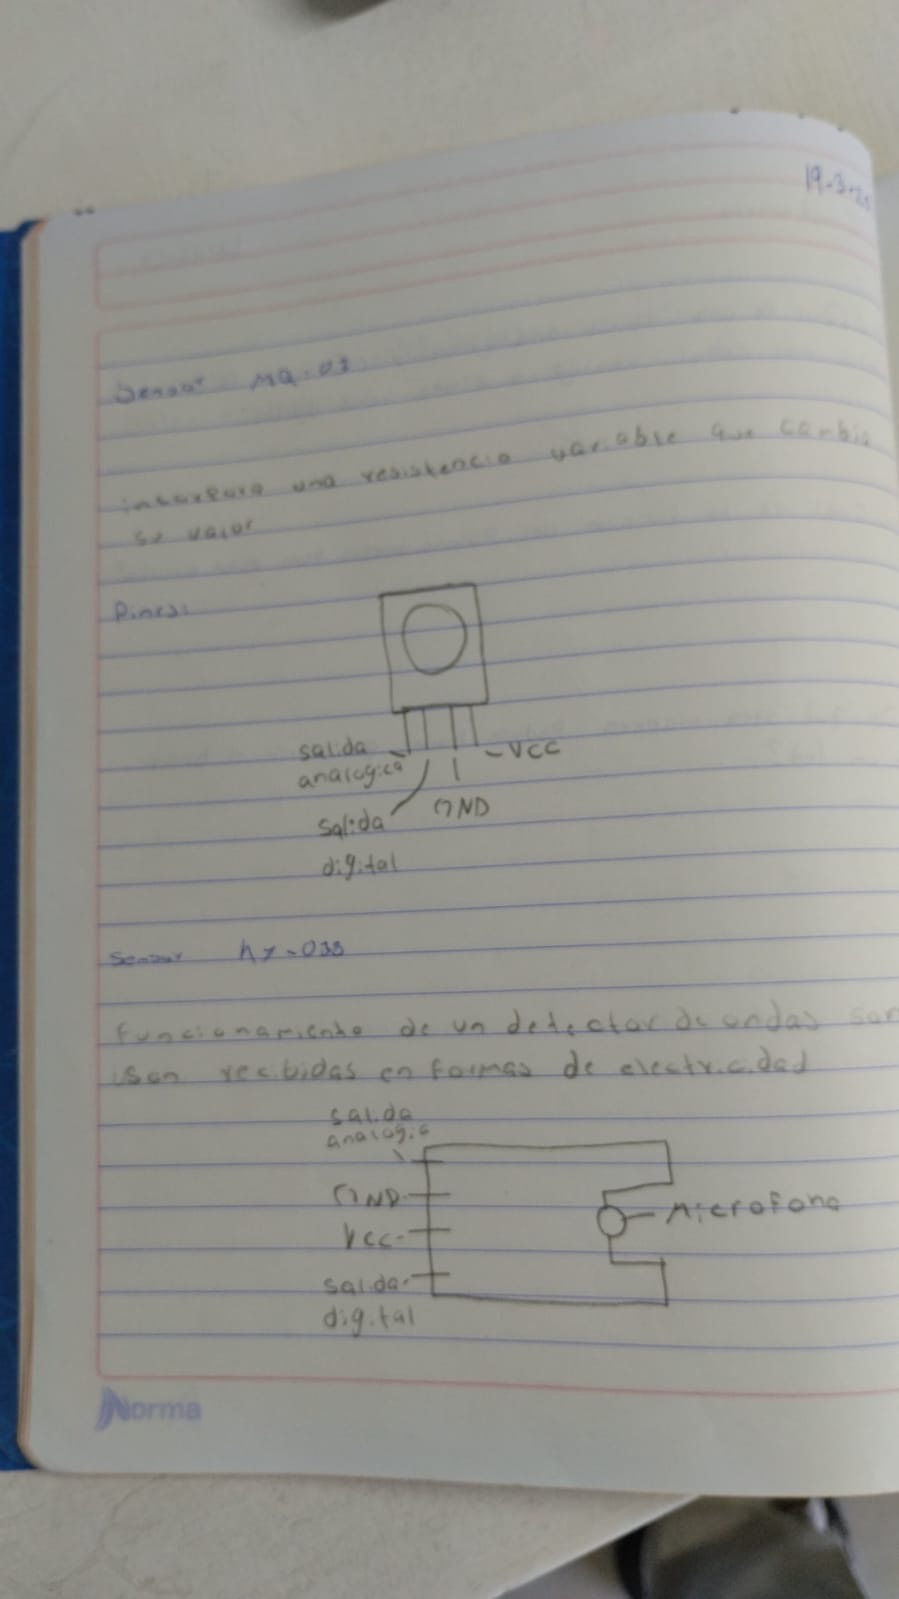 19-3-25
Sensor MQ-03
incorpora una resistencia variable que cambia
su valor
Pines:
salida
analogica
VCC
GND
salida
digital
Sensor hy-038
Funcionamiento de un detector de ondas son
ison recibidas en formas de electricidad
salida
analogic
GND
Vcc
Microfono
salida
digital
Norma